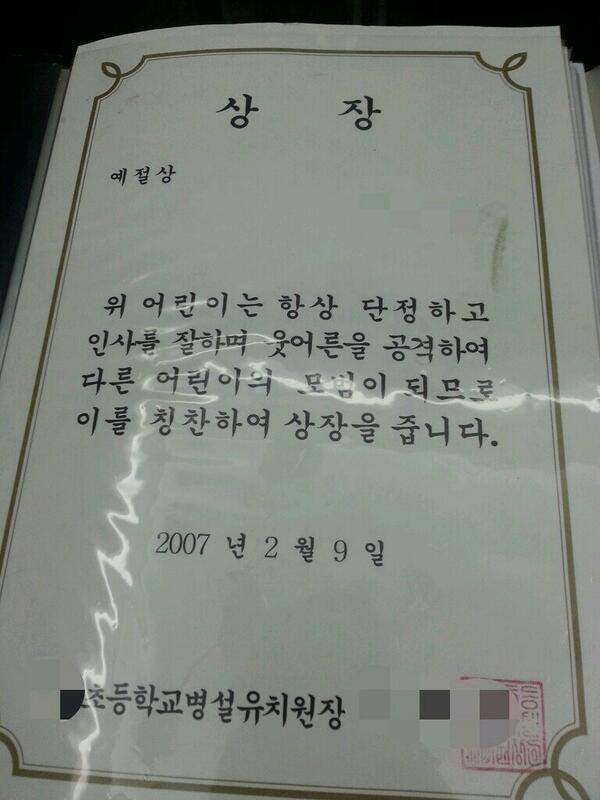 상 장
예절상
위 어린이는 항상 단정하고
인사를 잘하며 웃어른을 공격하여
다른 어린이의 모범이 되므로
이를 칭찬하여 상장을 줍니다.
2007 년 2 월 9 일
초등학교병설유치원장